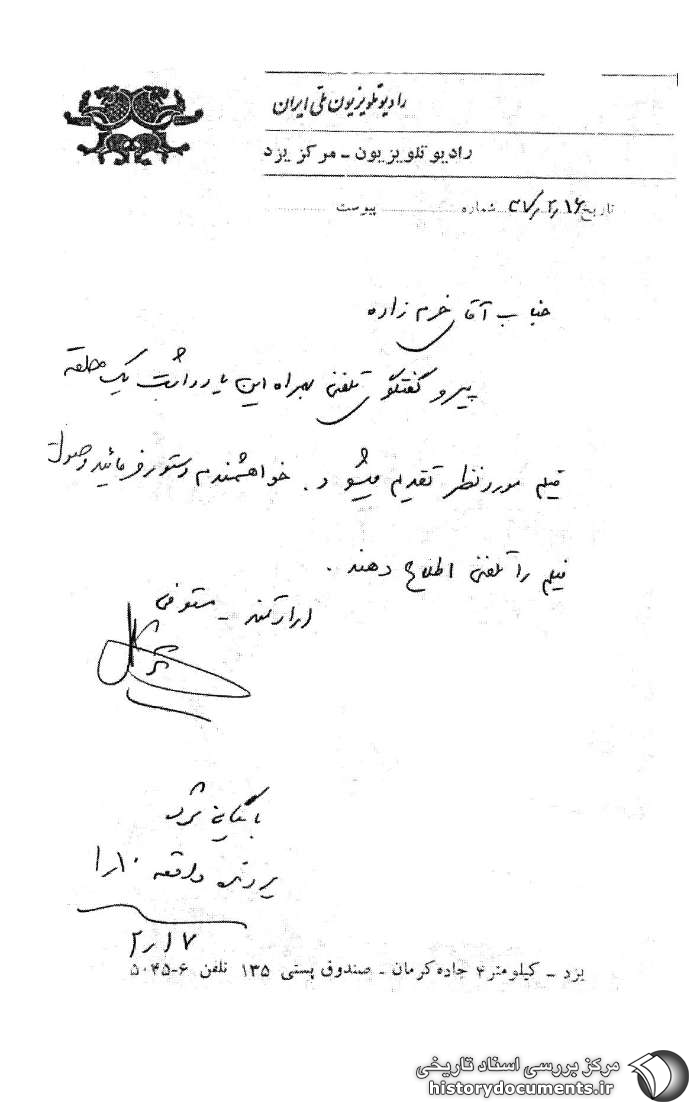 رادیو تلویزیون ملی ایران
رادیو تلویزیون - مرکز یزد
تاریخ ۳۷٫۲٫۱۶ شماره ............ پیوست ............
جناب آقای خرم زاده
پیرو گفتگوی تلفنی بهمراه این یادداشت یک حلقه
فیلم مورد نظر تقدیم میشود. خواهشمندم دستور فرمائید وصول
فیلم را تلفنی اطلاع دهند.
ارادتمند - مستوفی
بایگانی شد
پرونده واقعه ۱۰٫۱
۲٫۱۷
یزد - کیلومتر ۴ جاده کرمان - صندوق پستی ۱۳۵ تلفن ۶-۵۰۴۵
مرکز بررسی اسناد تاریخی
historydocuments.ir